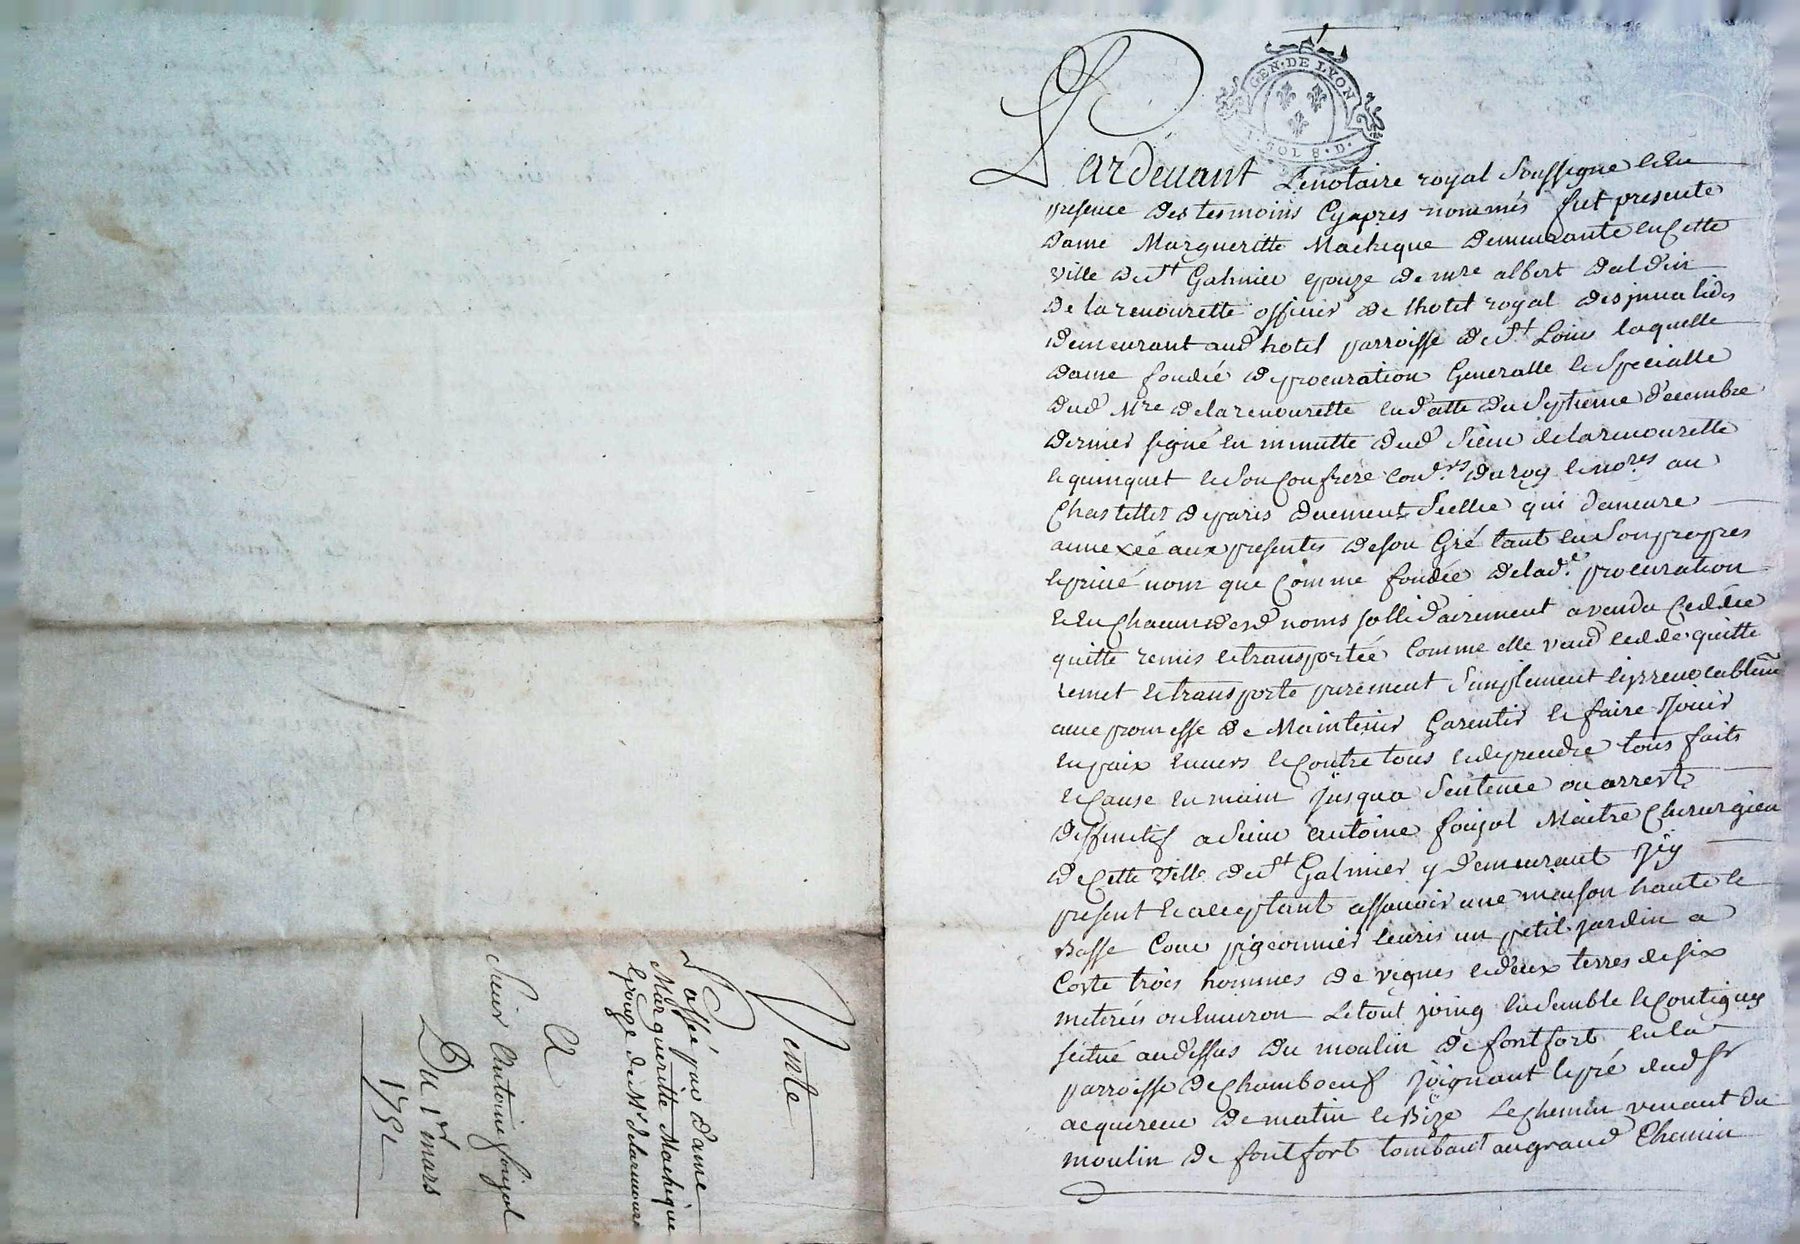 Vente
Passé par Dame
Margueritte Machique
Epouze de Mr delarenour
A
Sieur Antoine foujol
Du 1er mars
GEN·DE LYON
SOL 8·D·
Pardevant Lenotaire royal Soussigné & En
presence des tesmoins Cyapres nommés fut presente
Dame Margueritte Machique Demeurante en Cette
Ville de St Galmier epouze de mre albert daldin
De la renourette officier de lhotel royal des jnvalides
demeurant aud hotel parroisse de St Louis laquelle
dame fondée de procuration Generalle & Specialle
dud Mre delarenourette en datte du Septieme decembre
dernier signé en minutte dud Sieur delarenourette
& quinquet & Son Confrere Coners du roy & nores au
Chastellet de paris duement Scellée qui demeure
annexéé aux presentes de son Gré tant en Son propres
& privé nom que Comme fondée de lade procuration
& En Chacun desd noms sollidairement a vendu Ceddée
quitte remis & transportée Comme elle vend cedde quitte
remet & transporte purement Simplement & irrevocablemt
avec promesse de Maintenir Garentir & faire Jouir
en paix envers & Contre tous & de prendre tous faits
& Cause en main Jusqua Sentence ou arrest
deffinitif a Sieur antoine foujol Maitre Chirurgien
de Cette Ville de St Galmier y demeurant Jcy
present & acceptant assavoir une maison haute &
Basse Cour pigeonnier Ecuries un petit jardin a
Coste trois hommes de vignes & deux terres de six
meterées ou Environ Le tout joing Ensemble & Contigues
scitué au dessus du moulin de fontfort en la
parroisse de Chamboeuf Joignant le pré dud Sr
acquereur de matin & Bize Le Chemin venant du
moulin de fontfort tombant au grand Chemin